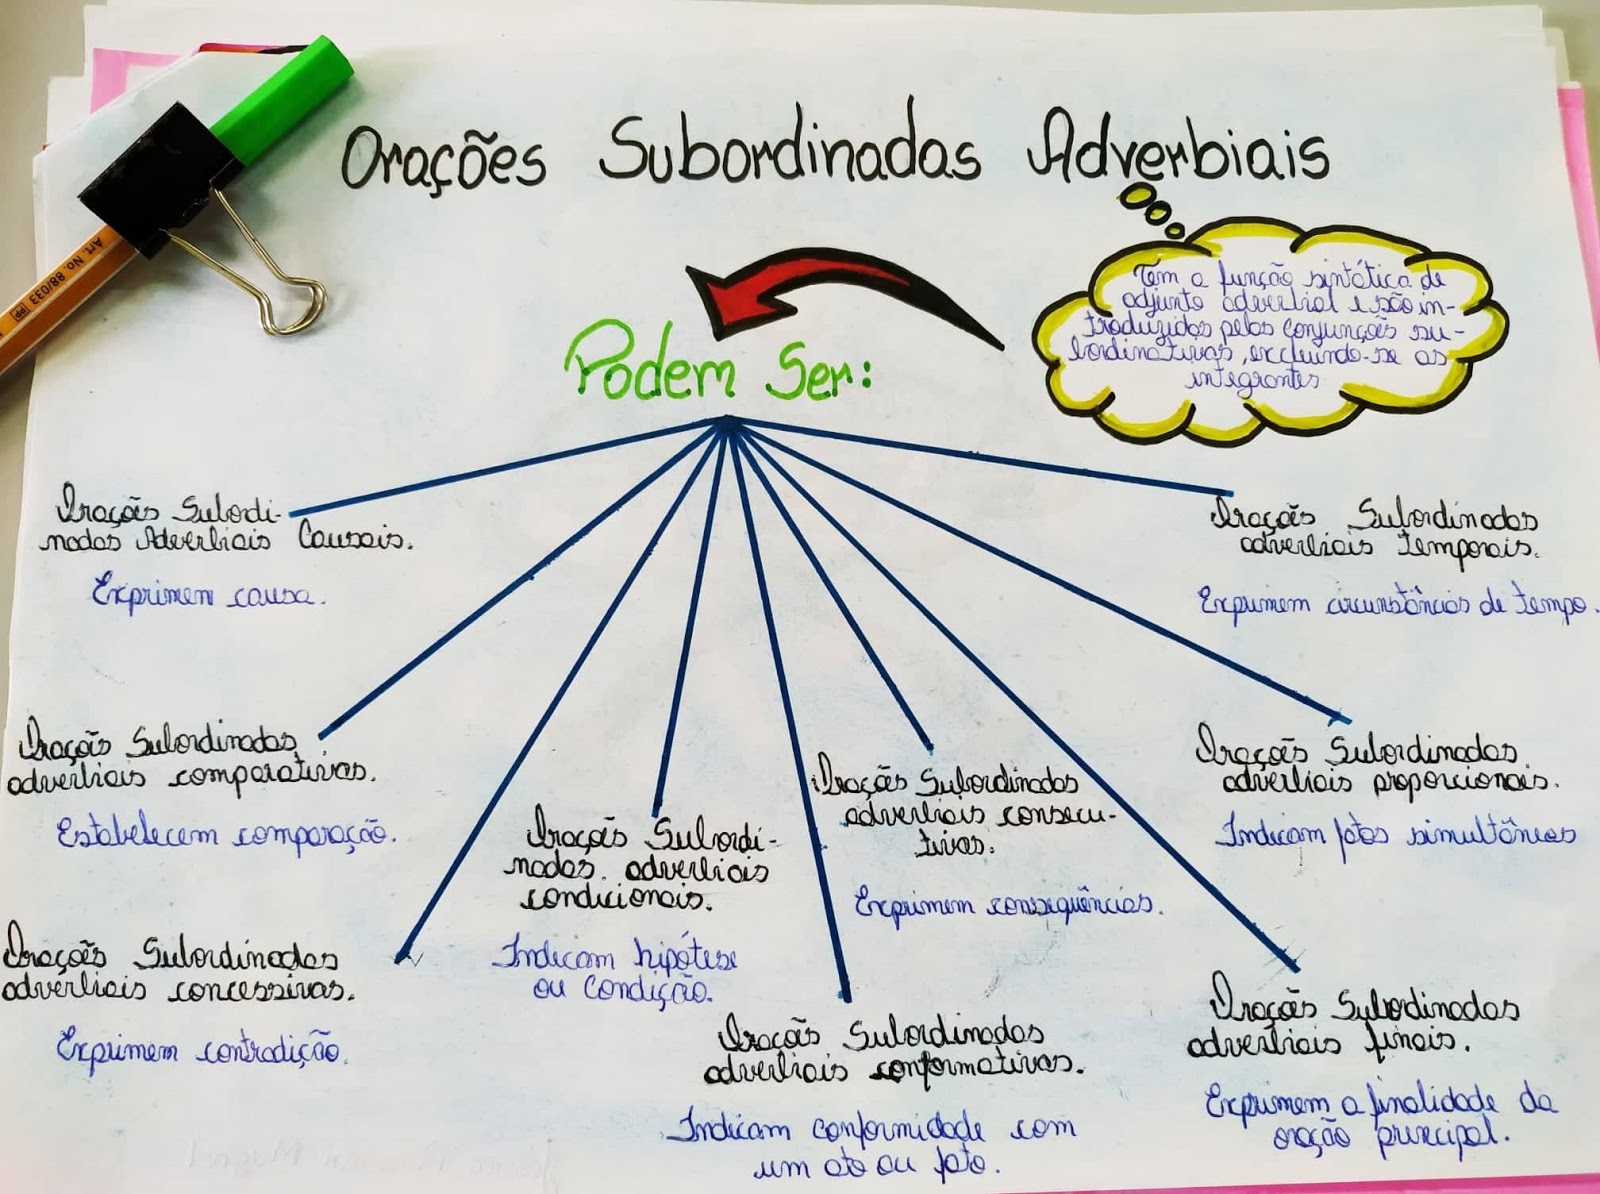 Orações Subordinadas Adverbiais
Tem a função sintática de
adjunto adverbial e são in-
troduzidas pelas conjunções su-
bordinativas, excluindo-se as
integrantes
Podem Ser:
Orações Subordi-
nadas Adverbiais Causais.
Exprimem causa.
Orações Subordinadas
adverbiais temporais.
Exprimem circunstâncias de tempo.
Orações Subordinadas
adverbiais comparativas.
Estabelecem comparação.
Orações Subordi-
nadas adverbiais
condicionais.
Indicam hipótese
ou Condição.
Orações Subordinadas
adverbiais consecu-
tivas.
Exprimem consequências.
Orações Subordinadas
adverbiais proporcionais.
Indicam fatos simultâneos
Orações Subordinadas
adverbiais concessivas.
Exprimem contradição.
Orações Subordinadas
adverbiais conformativas.
Indicam conformidade com
um ato ou fato.
Orações Subordinadas
adverbiais finais.
Exprimem a finalidade da
oração principal.
Art. No. 88/033 PP